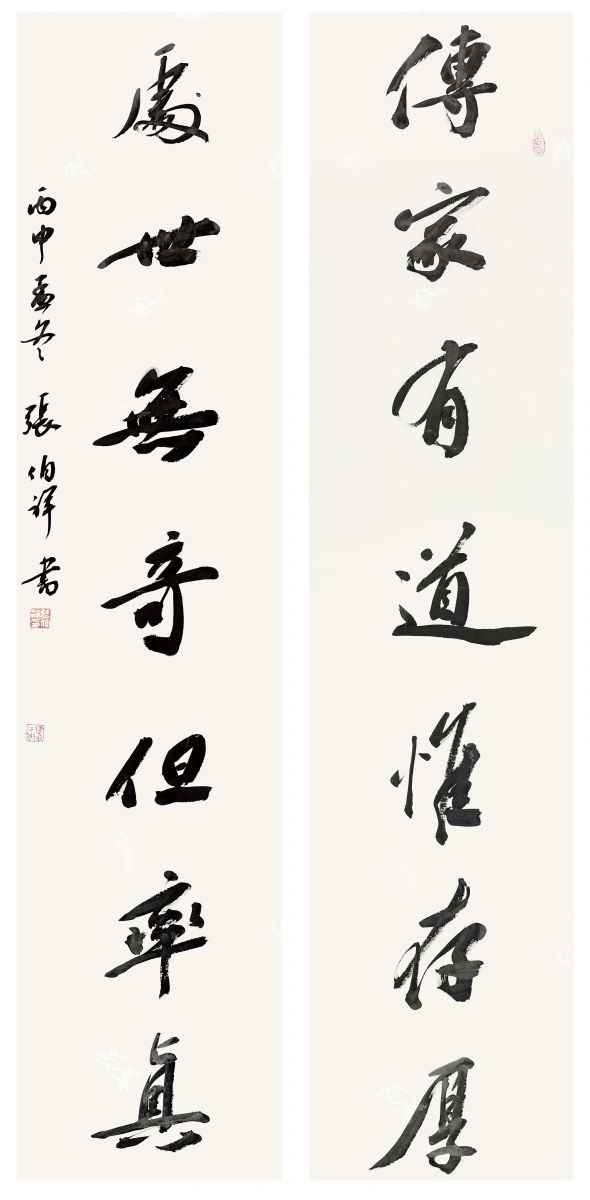 傳家有道惟存厚
處世無奇但率真
丙申孟冬 張伯祥書